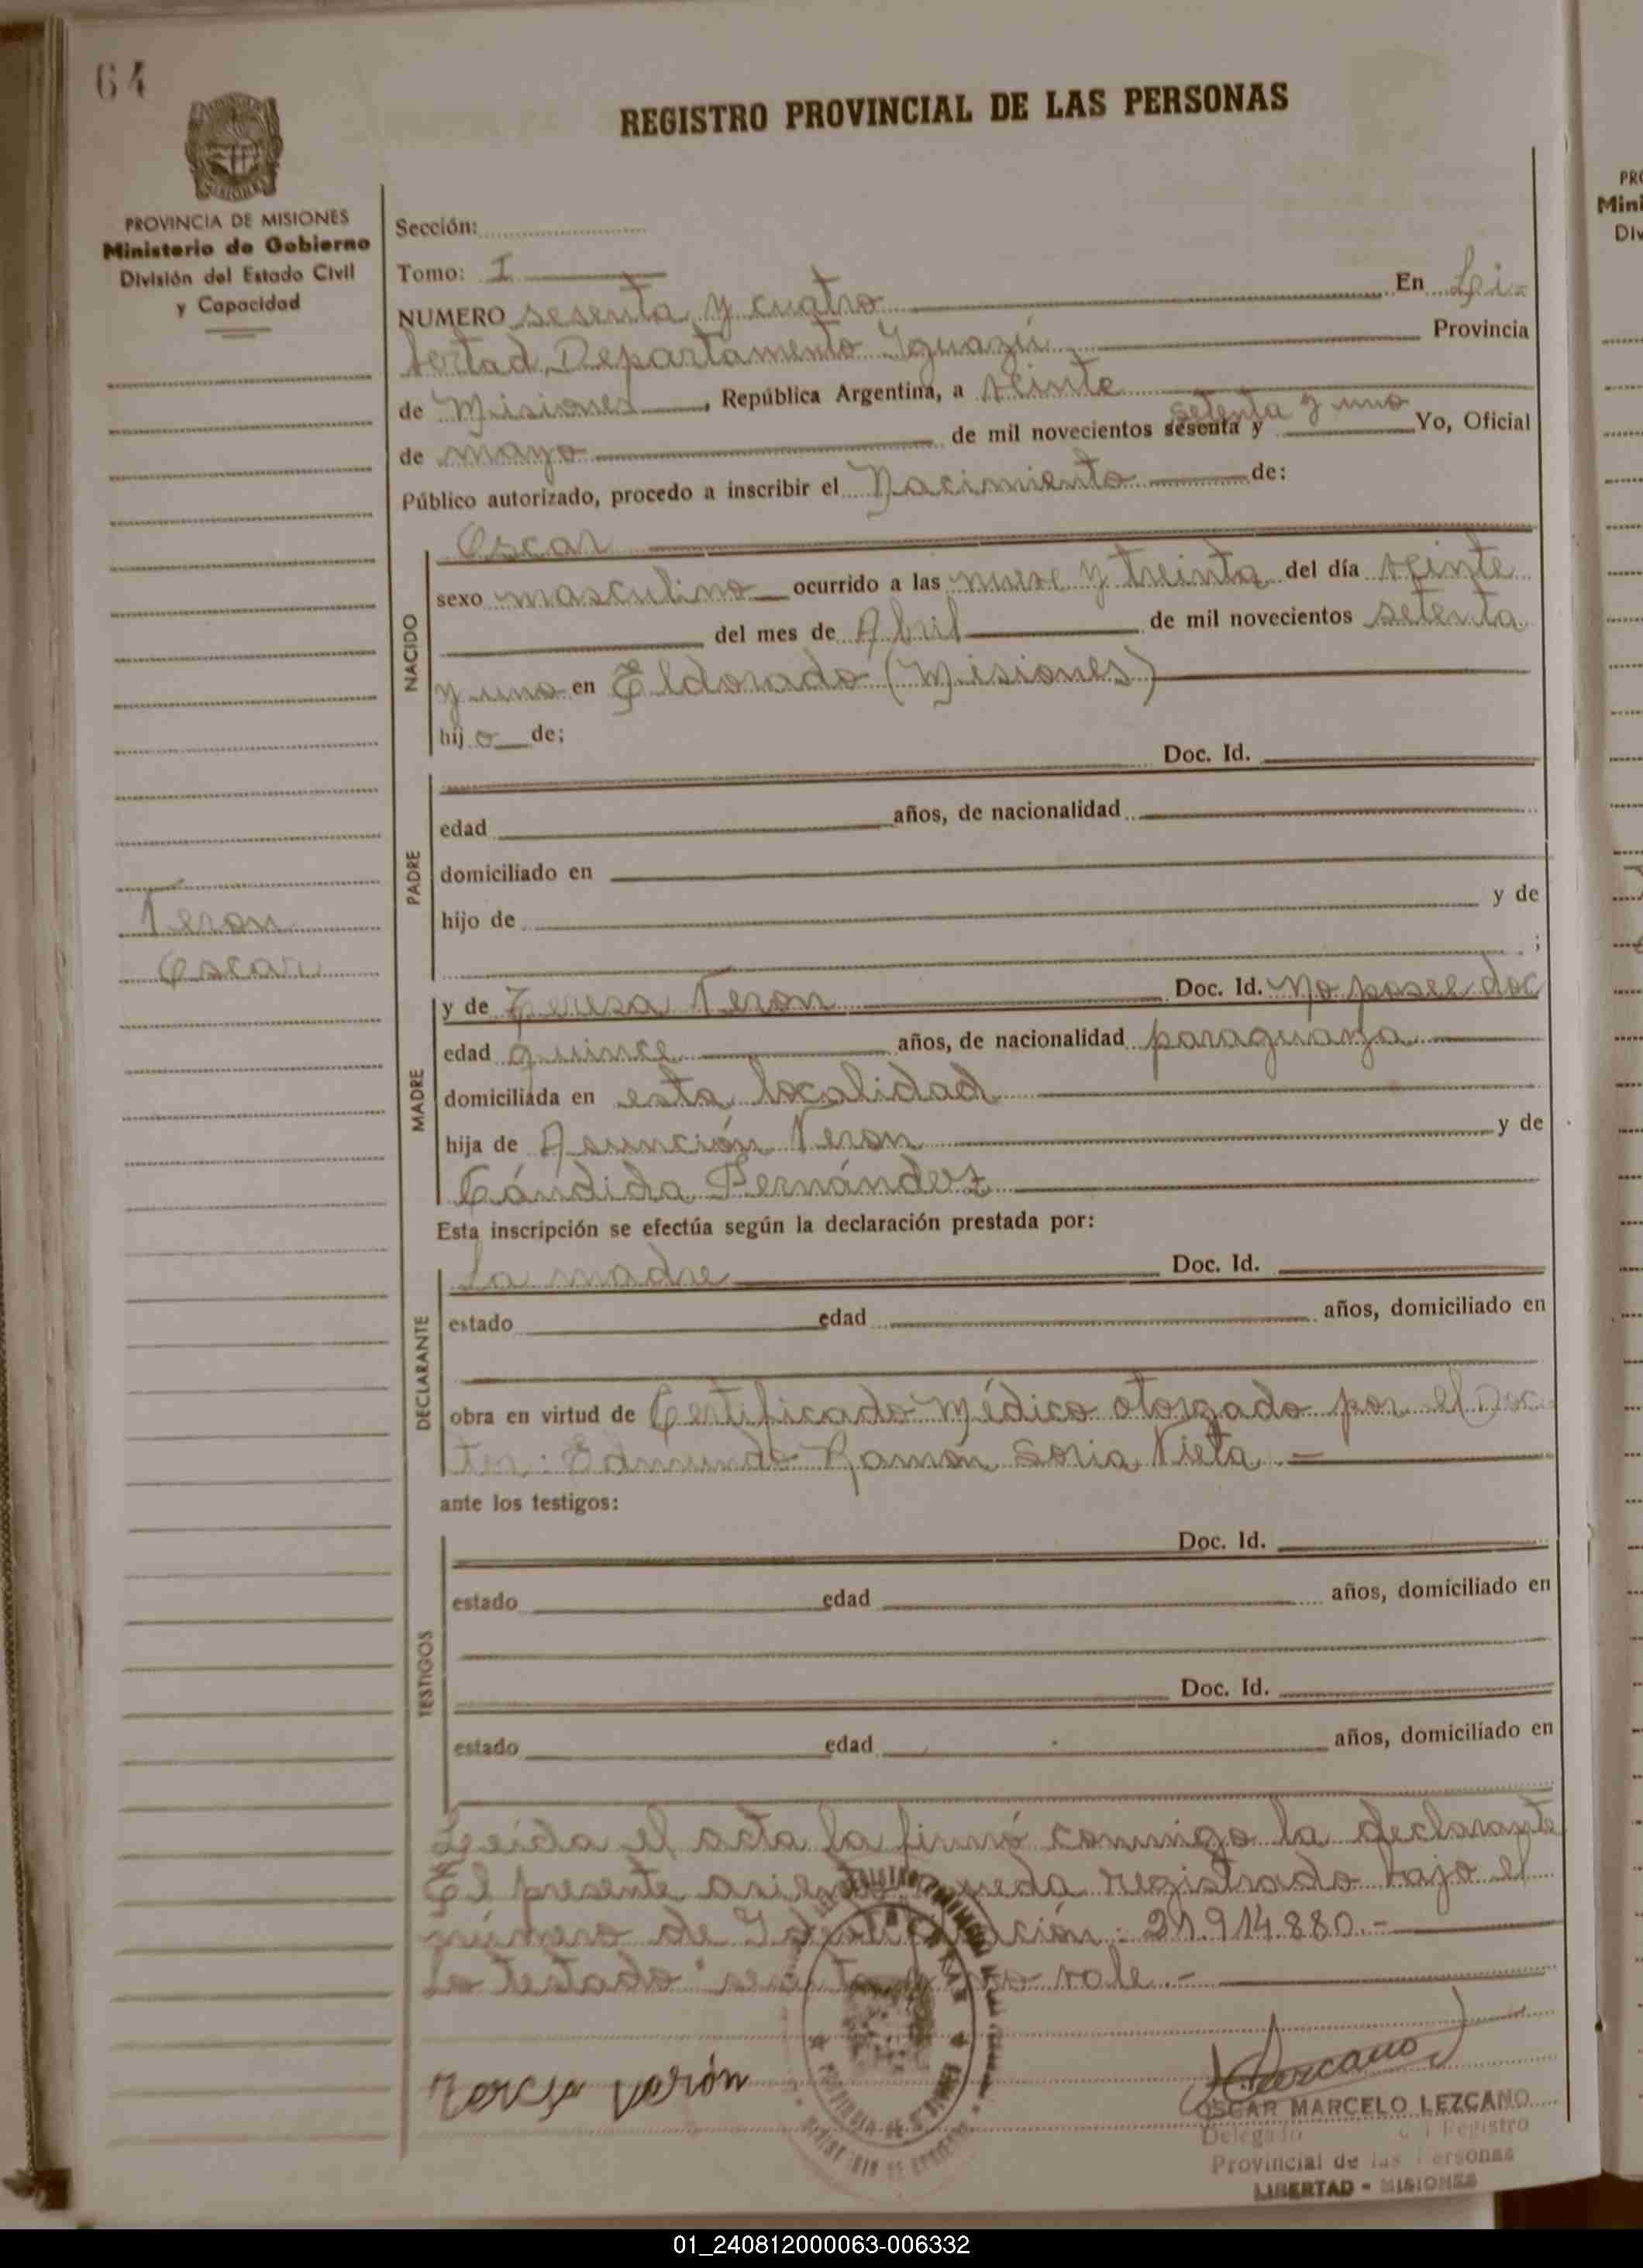 64
REGISTRO PROVINCIAL DE LAS PERSONAS
PROVINCIA DE MISIONES
Ministerio de Gobierno
División del Estado Civil
y Capacidad
Sección:
Tomo: I
NUMERO sesenta y cuatro En Li-
bertad, Departamento Iguazú Provincia
de Misiones, República Argentina, a veinte
setenta y uno
de mayo de mil novecientos sesenta y Yo, Oficial
Público autorizado, procedo a inscribir el Nacimiento de:
NACIDO
Oscar
sexo masculino ocurrido a las nueve y treinta del día veinte
del mes de Abril de mil novecientos setenta
y uno en Eldorado (Misiones)
hijo de;
PADRE
Doc. Id.
edad años, de nacionalidad
domiciliado en
hijo de y de
;
Veron
Oscar
MADRE
y de Teresa Veron Doc. Id. No posee doc
edad quince años, de nacionalidad paraguaya
domiciliada en esta localidad
hija de Asunción Veron y de
Cándida Fernández
Esta inscripción se efectúa según la declaración prestada por:
DECLARANTE
La madre Doc. Id.
estado edad años, domiciliado en
obra en virtud de Certificado Médico otorgado por el Doc-
tor: Edmundo Ramón Soria Vieta.-
ante los testigos:
TESTIGOS
Doc. Id.
estado edad años, domiciliado en
Doc. Id.
estado edad años, domiciliado en
Leída el acta la firmó conmigo la declarante
El presente asiento queda registrado bajo el
número de Identificación: 21.914.880.-
Lo testado "sesenta" no vale.-
Teresa verón
Lezcano
OSCAR MARCELO LEZCANO
Delegado del Registro
Provincial de las Personas
LIBERTAD - MISIONES
01_240812000063-006332